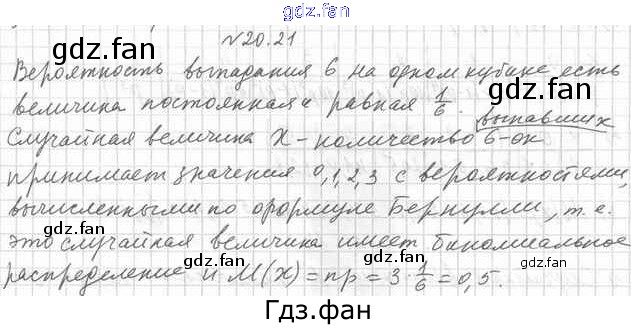 gdz.fan
№20.21
gdz.fan gdz.fan
Вероятность выпадания 6 на одном кубике есть
величина постоянная и равная 1/6. выпавших
Случайная величина X – количество 6-ок
принимает значения 0,1,2,3 с вероятностями,
gdz.fan gdz.fan
вычисленными по формуле Бернулли, т.е.
это случайная величина имеет биномиальное
распределение и M(x) = np = 3·1/6 = 0,5.
gdz.fan gdz.fan
Гдз.фан